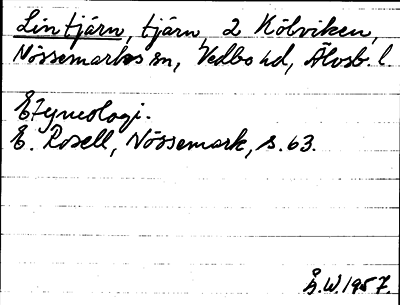 Lintjärn, tjärn, 2 Kölviken,
Nössemarks sn, Vedbo hd, Älvsb. l.
Etymologi.
E. Rosell, Nössemark, s. 63.
Å.W. 1957.